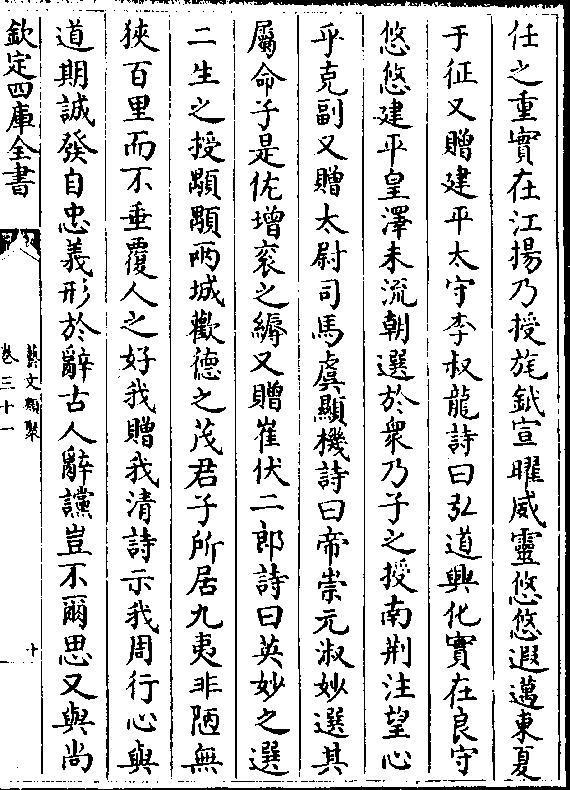 任之重實在江揚乃授旄鉞宣曜威靈悠悠遐邁東夏
于征又贈建平太守李叔龍詩曰弘道興化實在良守
悠悠建平皇澤未流朝選於衆乃子之授南荆注望心
乎克副又贈太尉司馬虞顯機詩曰帝崇元淑妙選其
屬命子是佐增衮之縟又贈崔伏二郎詩曰英妙之選
二生之授顒顒兩城歡德之茂君子所居九夷非陋無
狹百里而不垂覆人之好我贈我清詩示我周行心與
道期誠發自忠義形於辭古人辭讜豈不爾思又與尚
欽定四庫全書
藝文類聚
卷三十一
十